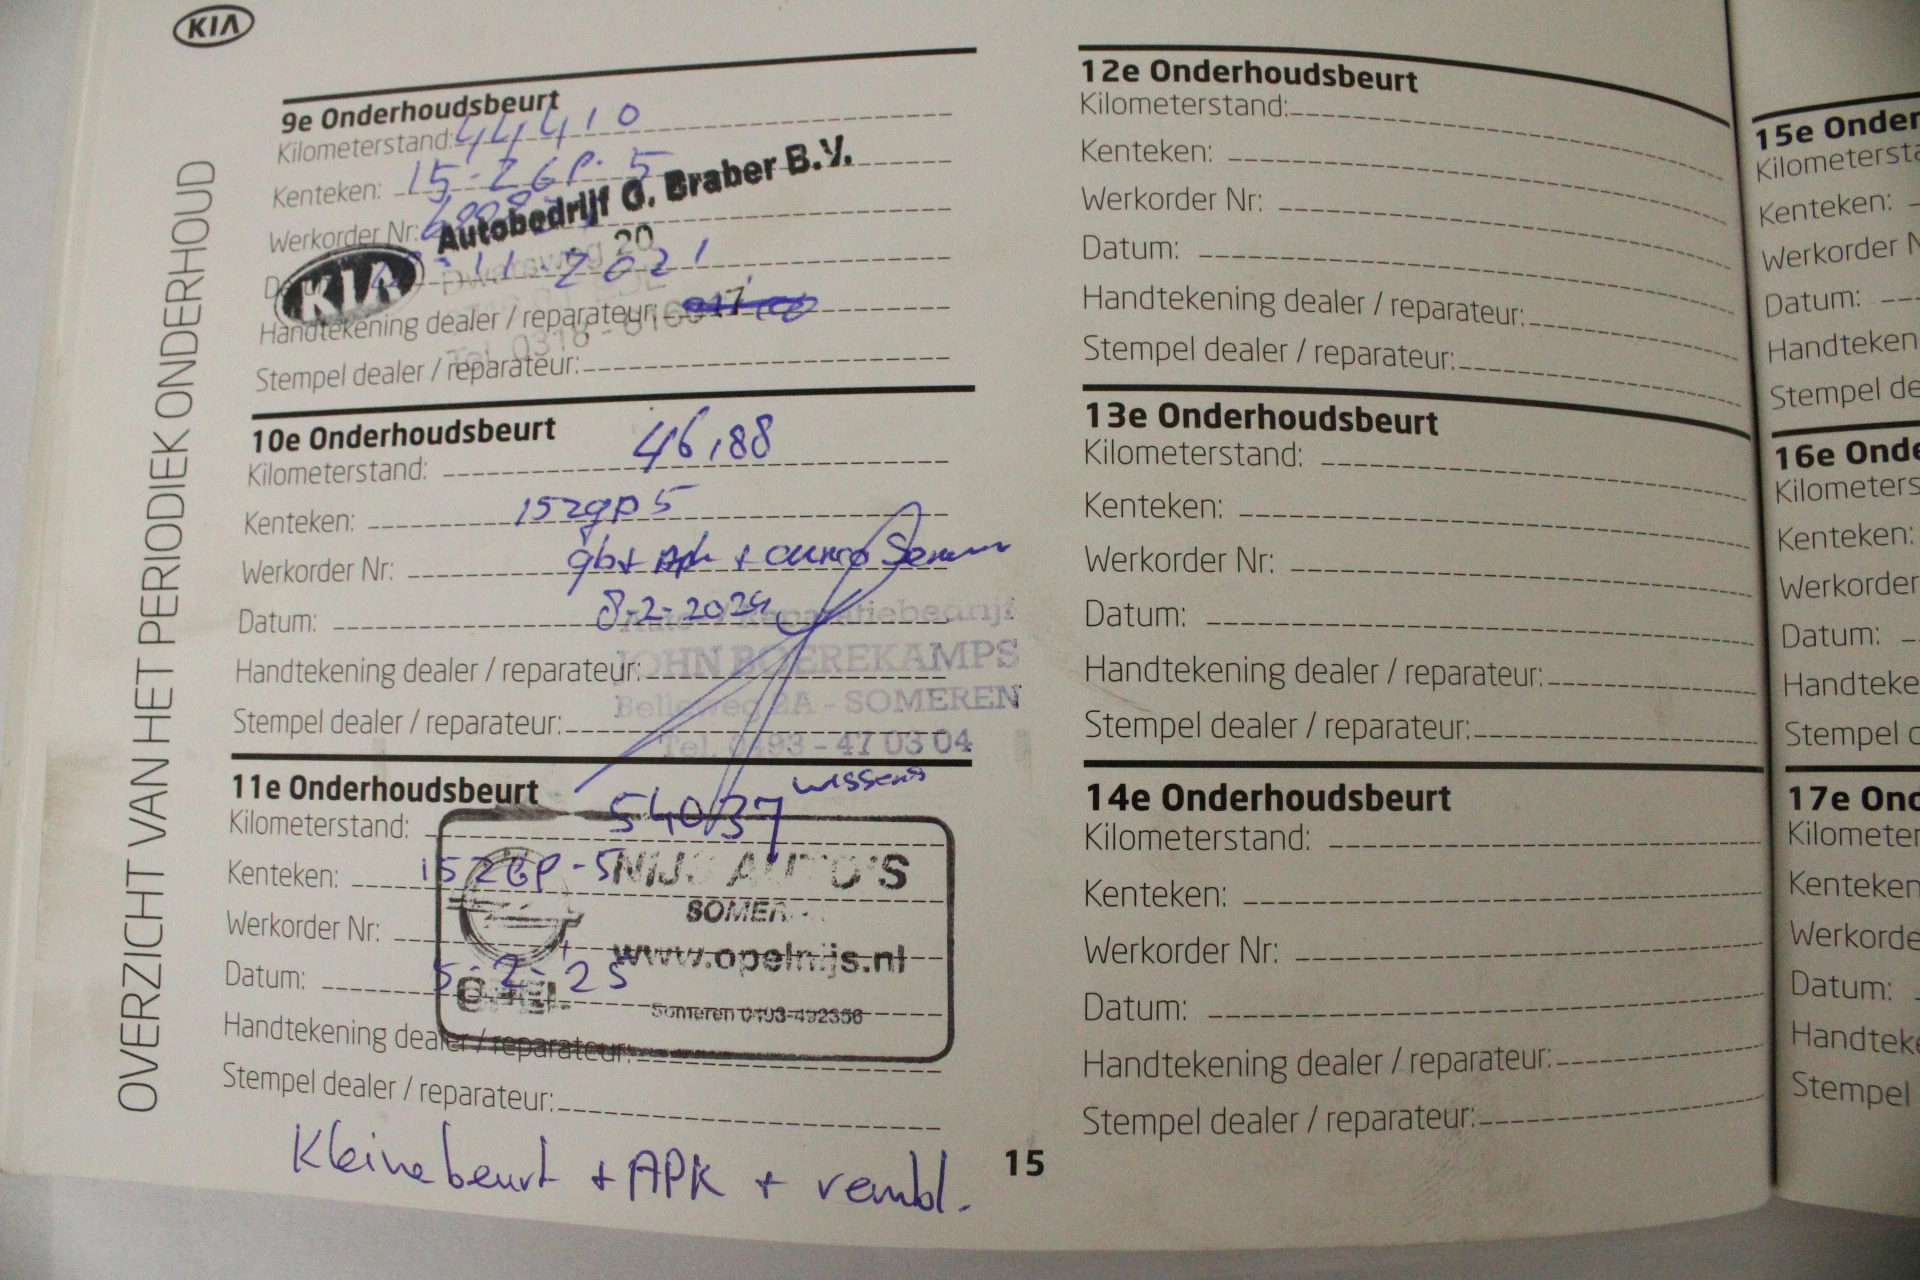 KIA
OVERZICHT VAN HET PERIODIEK ONDERHOUD
9e Onderhoudsbeurt
Kilometerstand: 44410
Kenteken: 15-ZGP-5
Werkorder Nr:
Autobedrijf G. Braber B.V.
KIA
Dwarsweg 20
11-2021
Handtekening dealer / reparateur:
Tel. 0318 -
Stempel dealer / reparateur:
10e Onderhoudsbeurt
Kilometerstand: 46,88
Kenteken: 15zgp5
Werkorder Nr:
Datum: 8-2-2024
Auto- / Reparatiebedrijf
Handtekening dealer / reparateur:
JOHN BOEREKAMPS
Belleweg 2A - SOMEREN
Stempel dealer / reparateur:
Tel. 0493 - 47 03 04
wissers
11e Onderhoudsbeurt
Kilometerstand: 54037
Kenteken: 15ZGP-5
NIJS AUTO'S
SOMEREN
Werkorder Nr:
www.opelnijs.nl
Datum: 5-2-25
OPEL
Someren 0493-492356
Handtekening dealer / reparateur:
Stempel dealer / reparateur:
Kleine beurt + APK + rembl.
15
12e Onderhoudsbeurt
Kilometerstand:
Kenteken:
Werkorder Nr:
Datum:
Handtekening dealer / reparateur:
Stempel dealer / reparateur:
13e Onderhoudsbeurt
Kilometerstand:
Kenteken:
Werkorder Nr:
Datum:
Handtekening dealer / reparateur:
Stempel dealer / reparateur:
14e Onderhoudsbeurt
Kilometerstand:
Kenteken:
Werkorder Nr:
Datum:
Handtekening dealer / reparateur:
Stempel dealer / reparateur:
15e Onder
Kilometersta
Kenteken:
Werkorder N
Datum:
Handteken
Stempel de
16e Onde
Kilometers
Kenteken:
Werkorder
Datum:
Handteke
Stempel d
17e Ond
Kilometer
Kenteken
Werkorde
Datum:
Handteke
Stempel